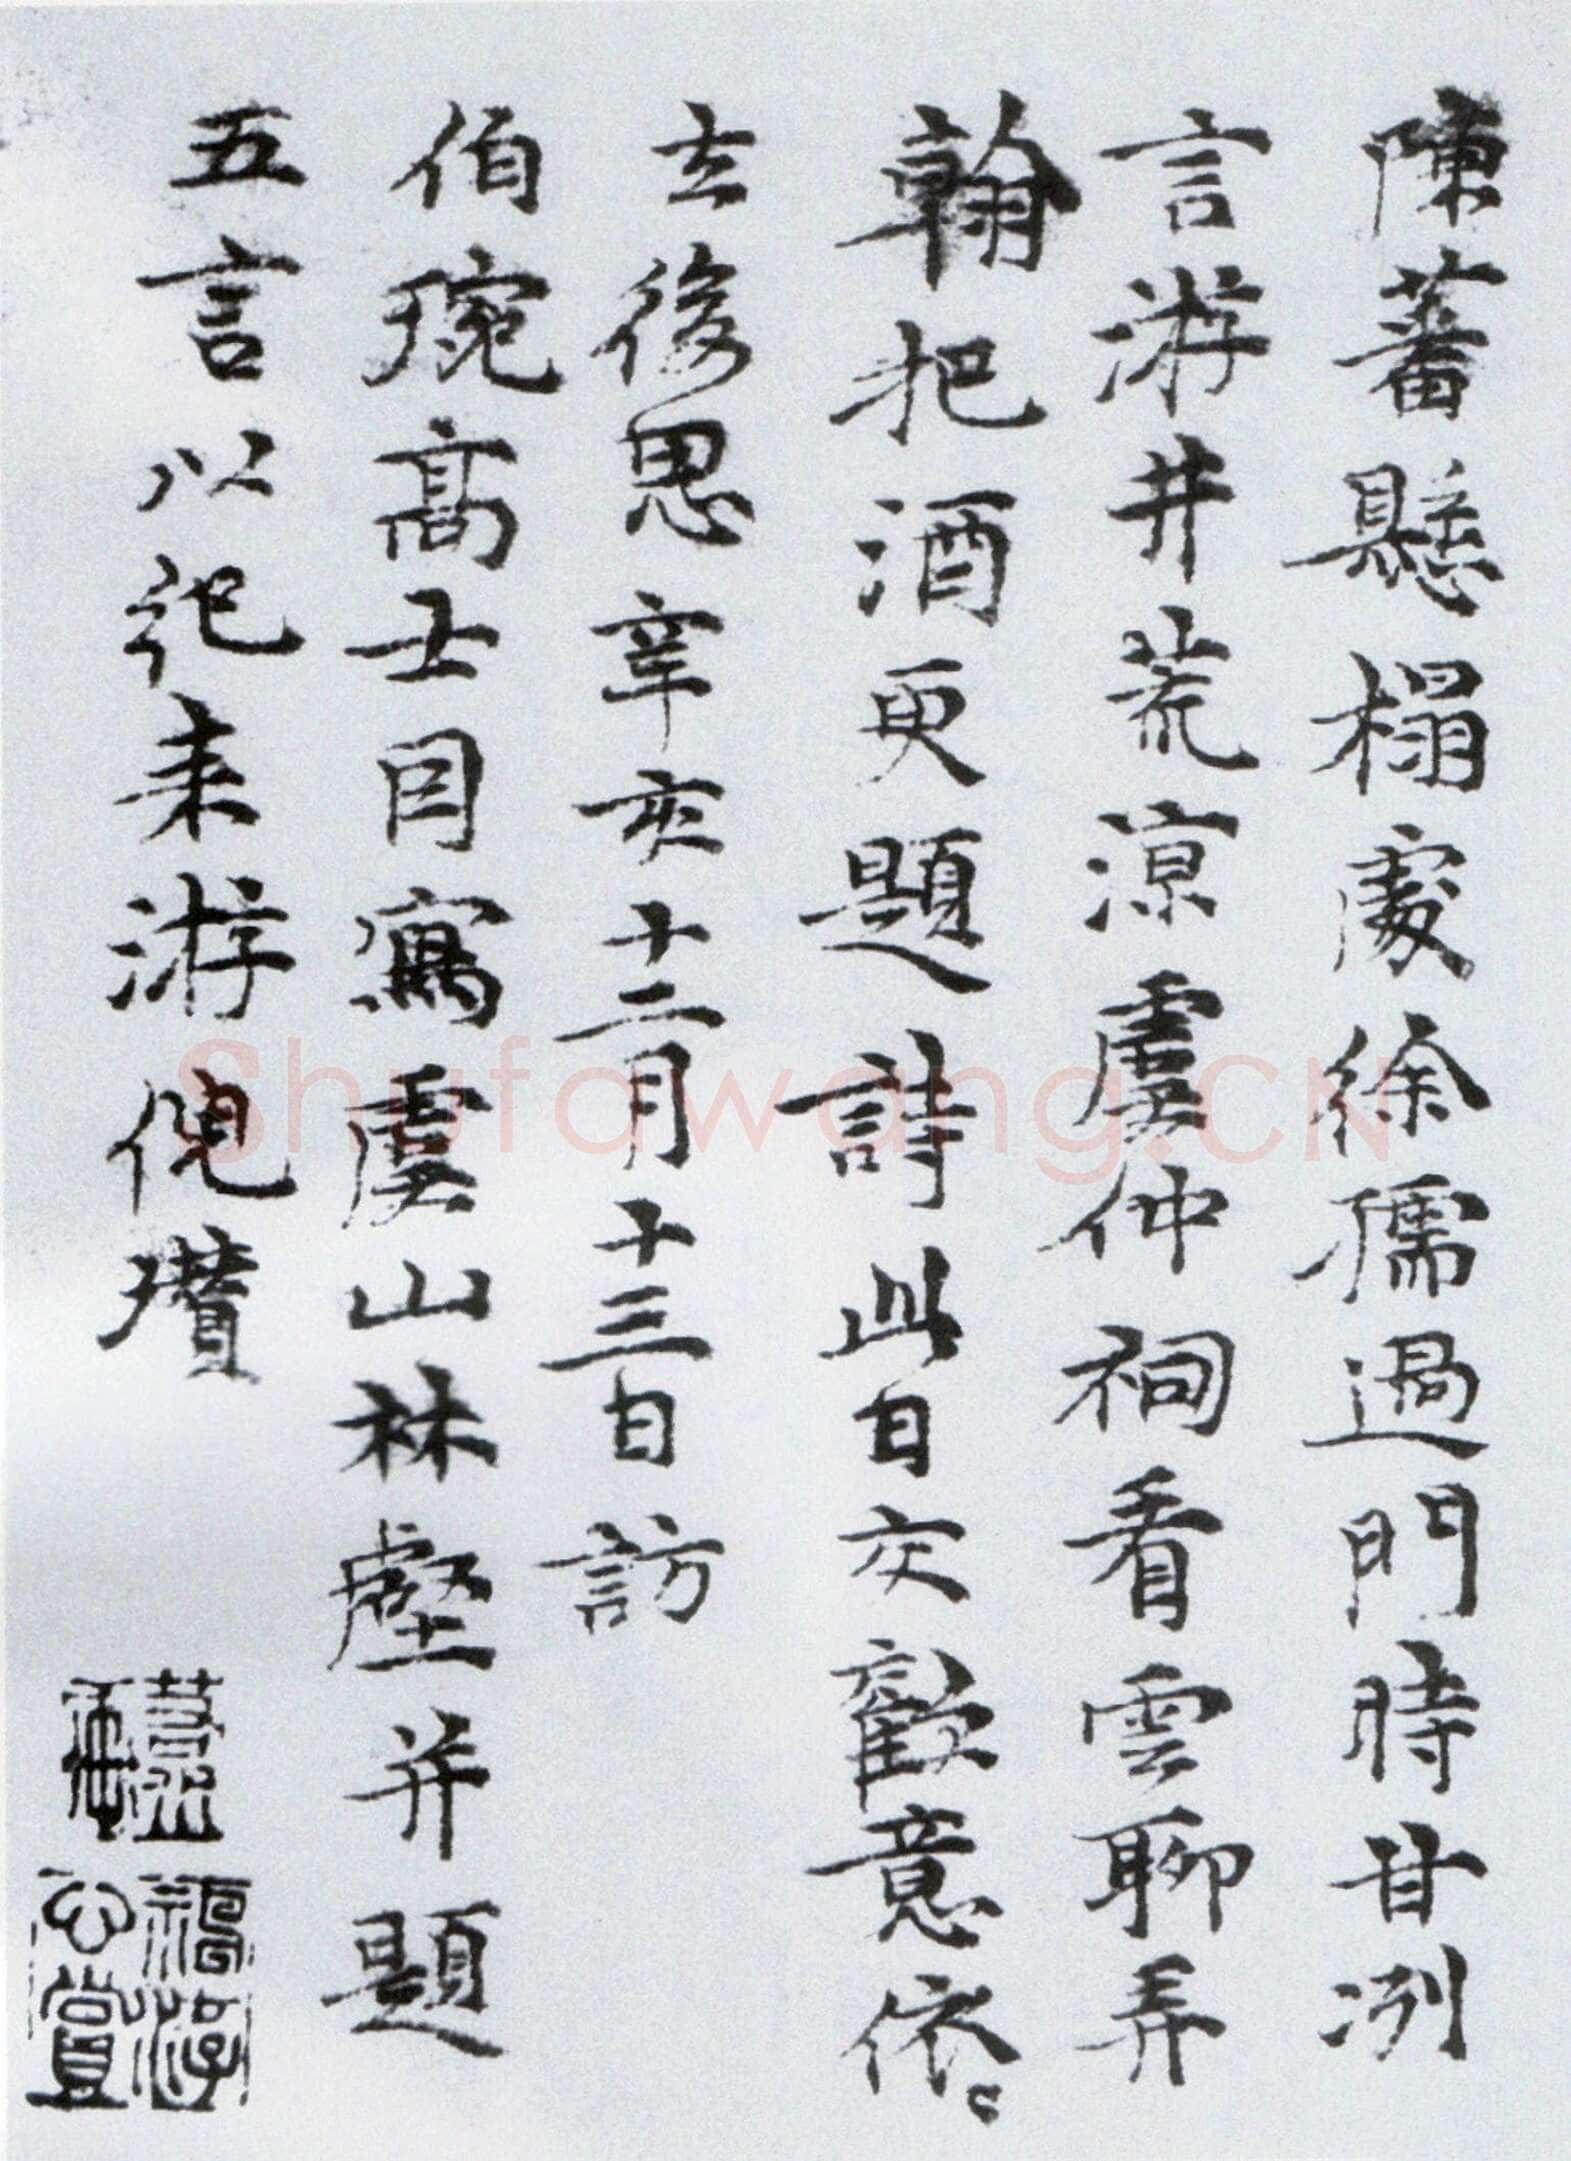 陳蕃懸榻處徐孺過門時甘洌
言游井荒涼虞仲祠看雲聊弄
翰把酒更題詩此日交歡意依〻
去後思辛亥十二月十三日訪
伯琬高士因寫虞山林壑并題
五言以紀来游倪瓚
Shufawang.CN